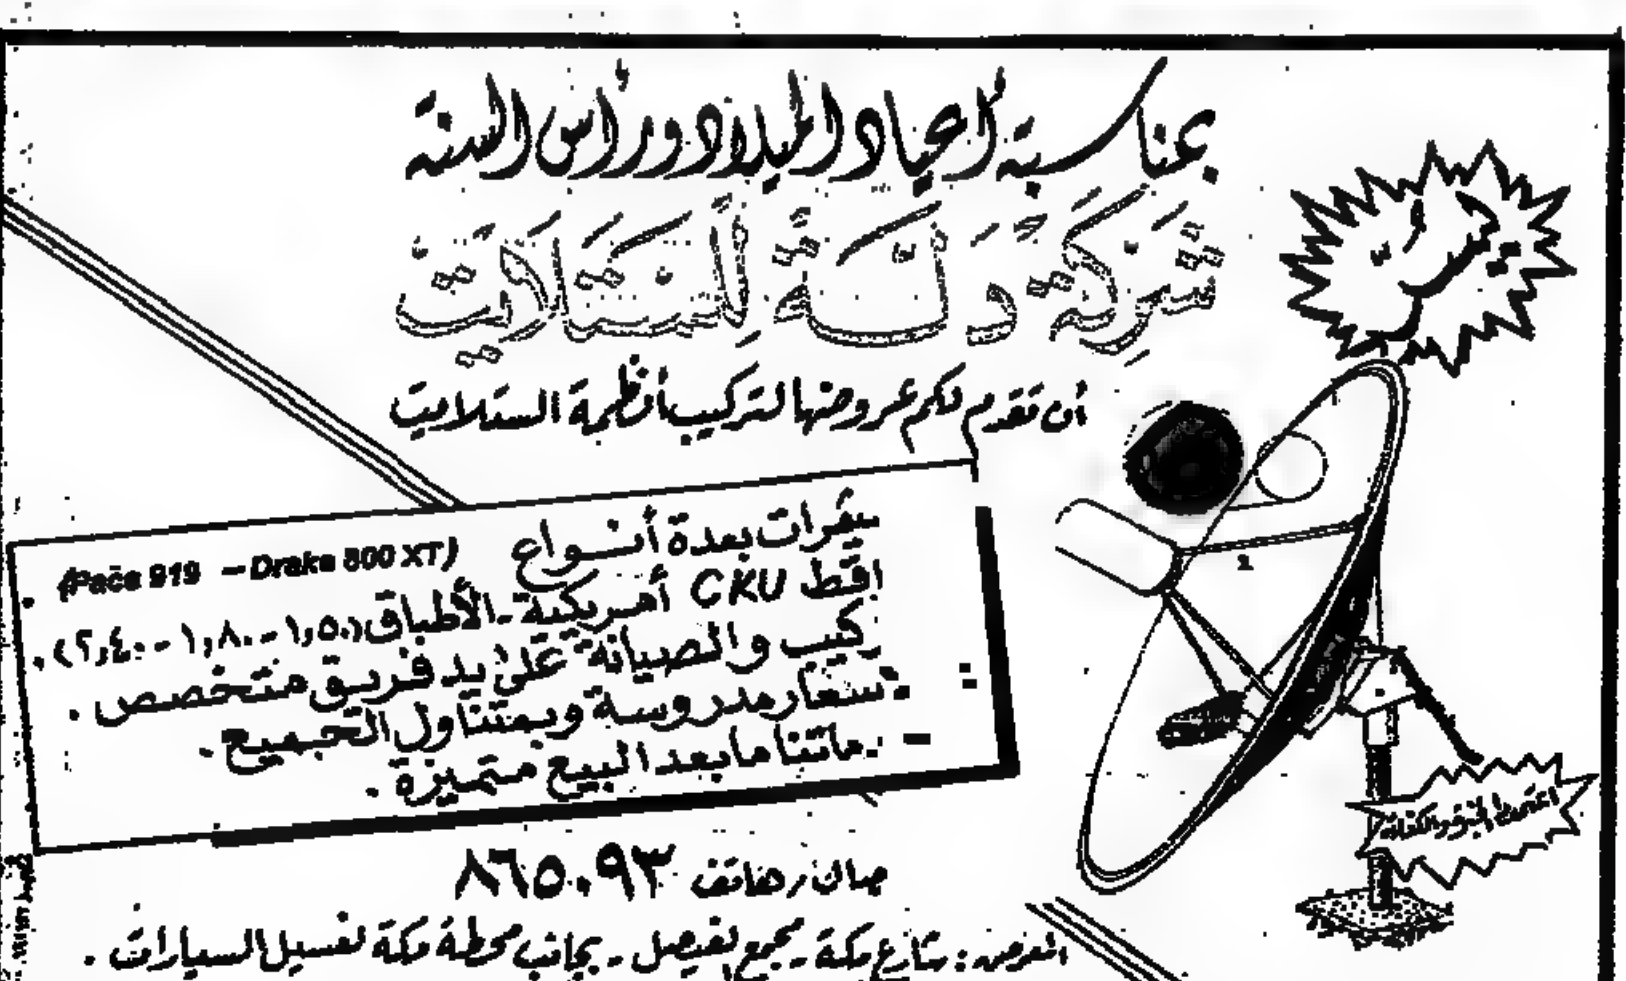 بمناسبة أعياد الميلاد ورأس السنة
يسر
شركة دلة للستلايت
أن تقدم لكم عروضها لتركيب أنظمة الستلايت
بعدة أنواع (Pace 919 – Drake 800 XT)
CKU أمريكية - الأطباق (١,٥٠ - ١,٨٠ - ٢,٤٠).
والصيانة على يد فريق متخصص.
مدروسة وبمتناول الجميع.
ما بعد البيع متميزة.
هاتف ٨٦٥٠٩٣
المعرض: شارع مكة - مجمع الفيصل - بجانب محطة مكة لغسيل السيارات.